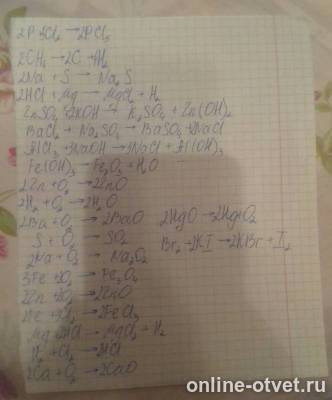 2P+3Cl₂ → 2PCl₃
2CH₄ → 2C + 4H₂
2Na + S → Na₂S
2HCl + Mg → MgCl₂ + H₂
ZnSO₄ + 2KOH → K₂SO₄ + Zn(OH)₂
BaCl₂ + Na₂SO₄ → BaSO₄ + 2NaCl
AlCl₃ + 3NaOH → 3NaCl + Al(OH)₃
Fe(OH)₃ → Fe₂O₃ + H₂O
2Zn + O₂ → 2ZnO
2H₂ + O₂ → 2H₂O
2Ba + O₂ → 2BaO
2HgO → 2Hg + O₂
S + O₂ → SO₂
Br₂ + 2KI → 2KBr + I₂
2Na + O₂ → Na₂O₂
3Fe + 2O₂ → Fe₃O₄
2Zn + O₂ → 2ZnO
2Fe + 3Cl₂ → 2FeCl₃
Mg + 2HCl → MgCl₂ + H₂
H₂ + Cl₂ → 2HCl
2Ca + O₂ → 2CaO
online-otvet.ru